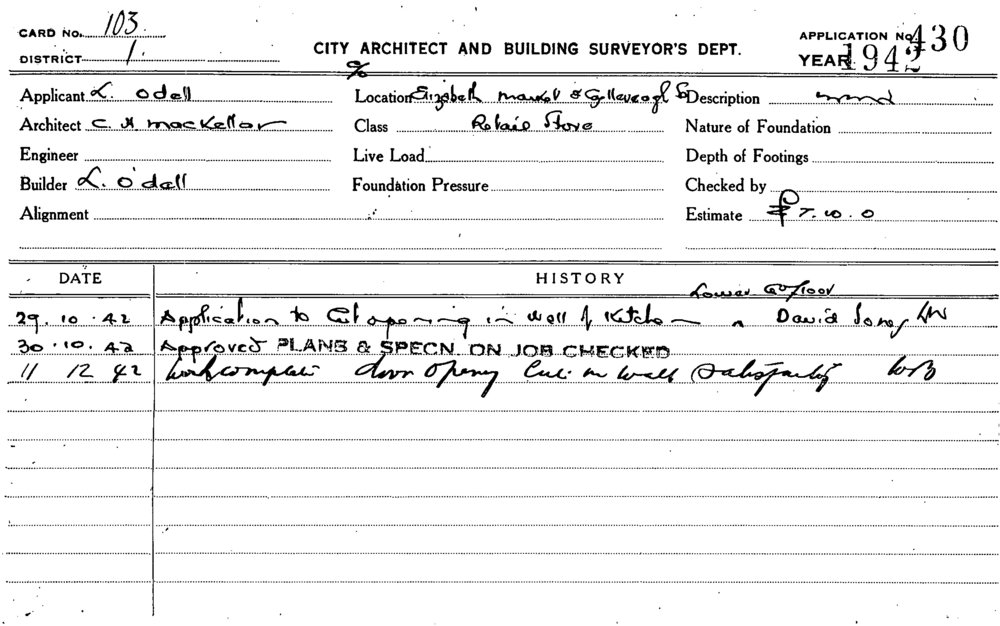 CARD No. 103.
DISTRICT 1.
CITY ARCHITECT AND BUILDING SURVEYOR'S DEPT.
APPLICATION No. 430
YEAR 1942
Applicant L. Odell
Architect C. H. Mackellar
Engineer
Builder L. O'dell
Alignment
c/o
Location Elizabeth Market &
Class Retail Store
Live Load
Foundation Pressure
Description mmd
Nature of Foundation
Depth of Footings
Checked by
Estimate £7.10.0
DATE HISTORY
Lower Gd floor
29.10.42 Application to Cut opening in wall of Kitchen David Jones
30.10.42 Approved PLANS & SPECN. ON JOB CHECKED
11 12 42 Work complete door opening Cut in wall Satisfactory WB